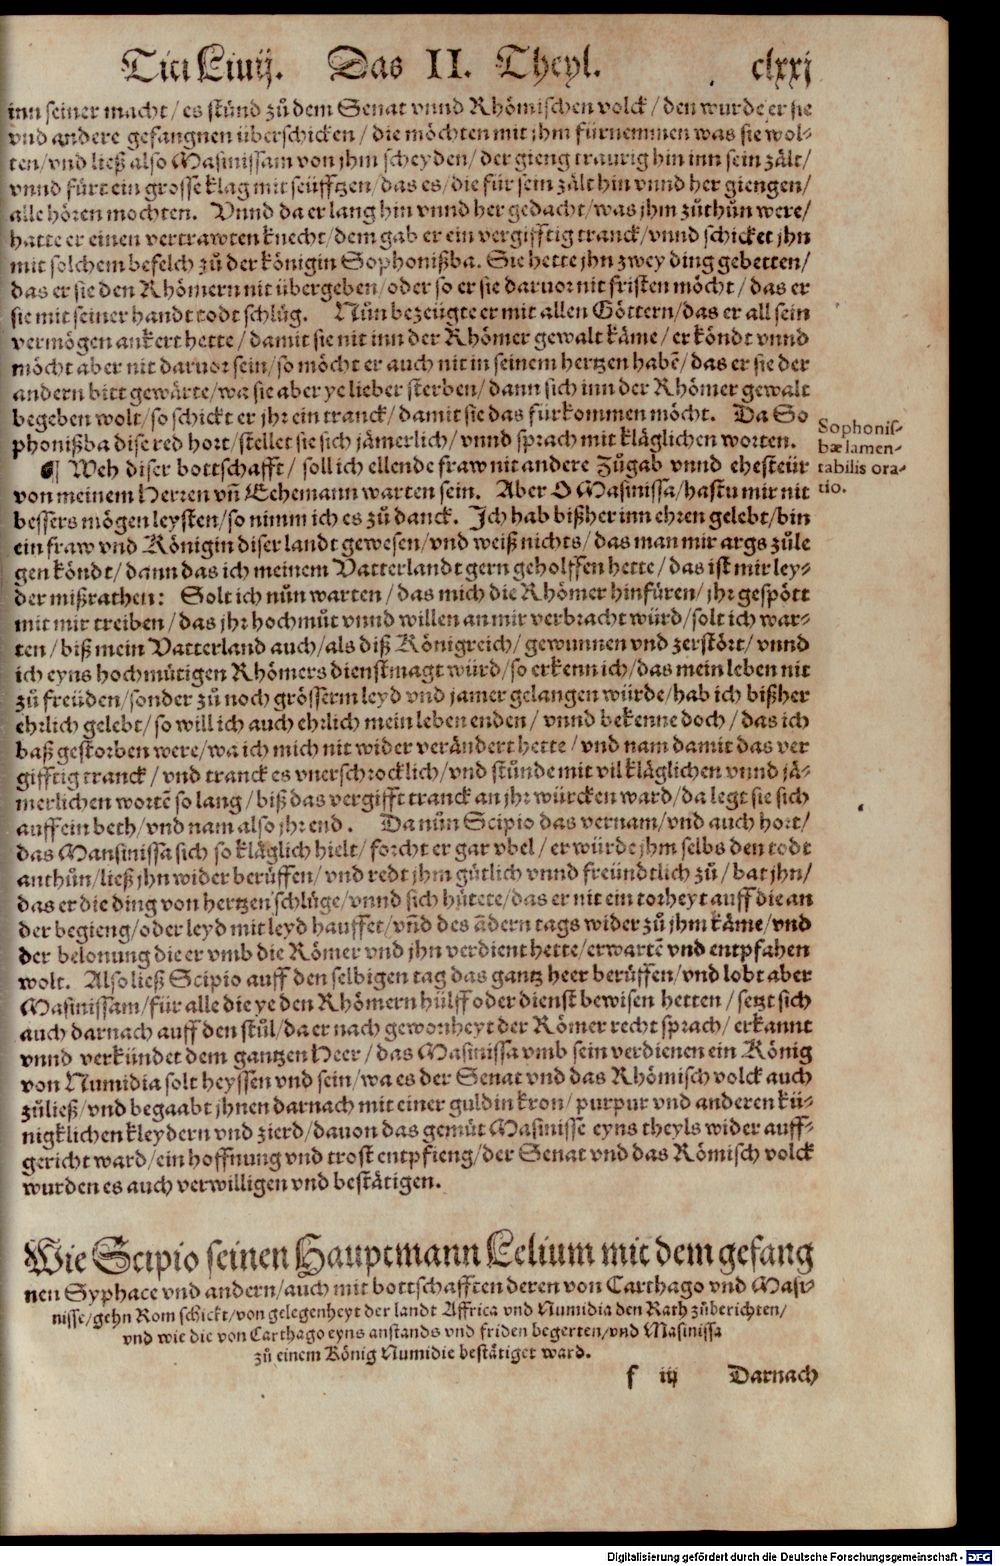 Titi Liuij. Das II. Theyl. clxxj
inn seiner macht / es stünd zů dem Senat vnnd Rhömischen volck / den wurde er sie
vnd andere gefangnen überschicken / die möchten mit jhm fürnemmen was sie wol-
ten / vnd ließ also Masinissam von jhm scheyden / der gieng traurig hin inn sein zält /
vnnd fürt ein grosse klag mit seüfftzen / das es / die für sein zält hin vnnd her giengen /
alle hören mochten. Vnnd da er lang hin vnnd her gedacht / was jhm zůthůn were /
hatte er einen vertrawten knecht / dem gab er ein vergifftig tranck / vnnd schicket jhn
mit solchem befelch zů der königin Sophonißba. Sie hette jhn zwey ding gebetten /
das er sie den Rhömern nit übergeben / oder so er sie daruor nit fristen möcht / das er
sie mit seiner handt todt schlůg. Nůn bezeügte er mit allen Göttern / das er all sein
vermögen ankert hette / damit sie nit inn der Rhömer gewalt käme / er köndt vnnd
möcht aber nit daruor sein / so möcht er auch nit in seinem hertzen habẽ / das er sie der
andern bitt gewärte / wa sie aber ye lieber sterben / dann sich inn der Rhömer gewalt
begeben wolt / so schickt er jhr ein tranck / damit sie das fürkommen möcht. Da So
phonißba dise red hort / stellet sie sich jämerlich / vnnd sprach mit kläglichen worten.
Sophonis-
bæ lamen-
tabilis ora-
tio.
¶ Weh diser bottschafft / soll ich ellende fraw nit andere Zůgab vnnd ehesteür
von meinem Herren vñ Eehemann warten sein. Aber O Masinissa / hastu mir nit
bessers mögen leysten / so nimm ich es zů danck. Ich hab bißher inn ehren gelebt / bin
ein fraw vnd Königin diser landt gewesen / vnd weiß nichts / das man mir args zůle
gen köndt / dann das ich meinem Vatterlandt gern geholffen hette / das ist mir ley-
der mißrathen: Solt ich nůn warten / das mich die Rhömer hinfüren / jhr gespött
mit mir treiben / das jhr hochmůt vnnd willen an mir verbracht würd / solt ich war-
ten / biß mein Vatterland auch / als diß Königreich / gewunnen vnd zerstört / vnnd
ich eyns hochmütigen Rhömers dienstmagt würd / so erkenn ich / das mein leben nit
zů freüden / sonder zů noch grösserm leyd vnd jamer gelangen würde / hab ich bißher
ehrlich gelebt / so will ich auch ehrlich mein leben enden / vnnd bekenne doch / das ich
baß gestorben were / wa ich mich nit wider verändert hette / vnd nam damit das ver
gifftig tranck / vnd tranck es vnerschrocklich / vnd stůnde mit vil kläglichen vnnd jä-
merlichen wortẽ so lang / biß das vergifft tranck an jhr würcken ward / da legt sie sich
auff ein beth / vnd nam also jhr end. Da nůn Scipio das vernam / vnd auch hort /
das Mansinissa sich so kläglich hielt / forcht er gar vbel / er würde jhm selbs den todt
anthůn / ließ jhn wider berůffen / vnd redt jhm gütlich vnnd freündtlich zů / bat jhn /
das er die ding von hertzen schlüge / vnnd sich hütete / das er nit ein torheyt auff die an
der begieng / oder leyd mit leyd hauffet / vñd des ãdern tags wider zů jhm käme / vnd
der belonung die er vmb die Römer vnd jhn verdient hette / erwartẽ vnd entpfahen
wolt. Also ließ Scipio auff den selbigen tag das gantz heer berůffen / vnd lobt aber
Masinissam / für alle die ye den Rhömern hülff oder dienst bewisen hetten / setzt sich
auch darnach auff den stůl / da er nach gewonheyt der Römer recht sprach / erkannt
vnnd verkündet dem gantzen Heer / das Masinissa vmb sein verdienen ein König
von Numidia solt heyssen vnd sein / wa es der Senat vnd das Rhömisch volck auch
zůließ / vnd begaabt jhnen darnach mit einer guldin kron / purpur vnd anderen kü-
nigklichen kleydern vnd zierd / dauon das gemüt Masinisse eyns theyls wider auff-
gericht ward / ein hoffnung vnd trost entpfieng / der Senat vnd das Römisch volck
wurden es auch verwilligen vnd bestätigen.
Wie Scipio seinen Hauptmann Lelium mit dem gefang
nen Syphace vnd andern / auch mit bottschafften deren von Carthago vnd Masi-
nisse / gehn Rom schickt / von gelegenheyt der landt Affrica vnd Numidia den Rath zůberichten /
vnd wie die von Carthago eyns anstands vnd friden begerten / vnd Masinissa
zů einem König Numidie bestätiget ward.
f iij Darnach
Digitalisierung gefördert durch die Deutsche Forschungsgemeinschaft - DFG